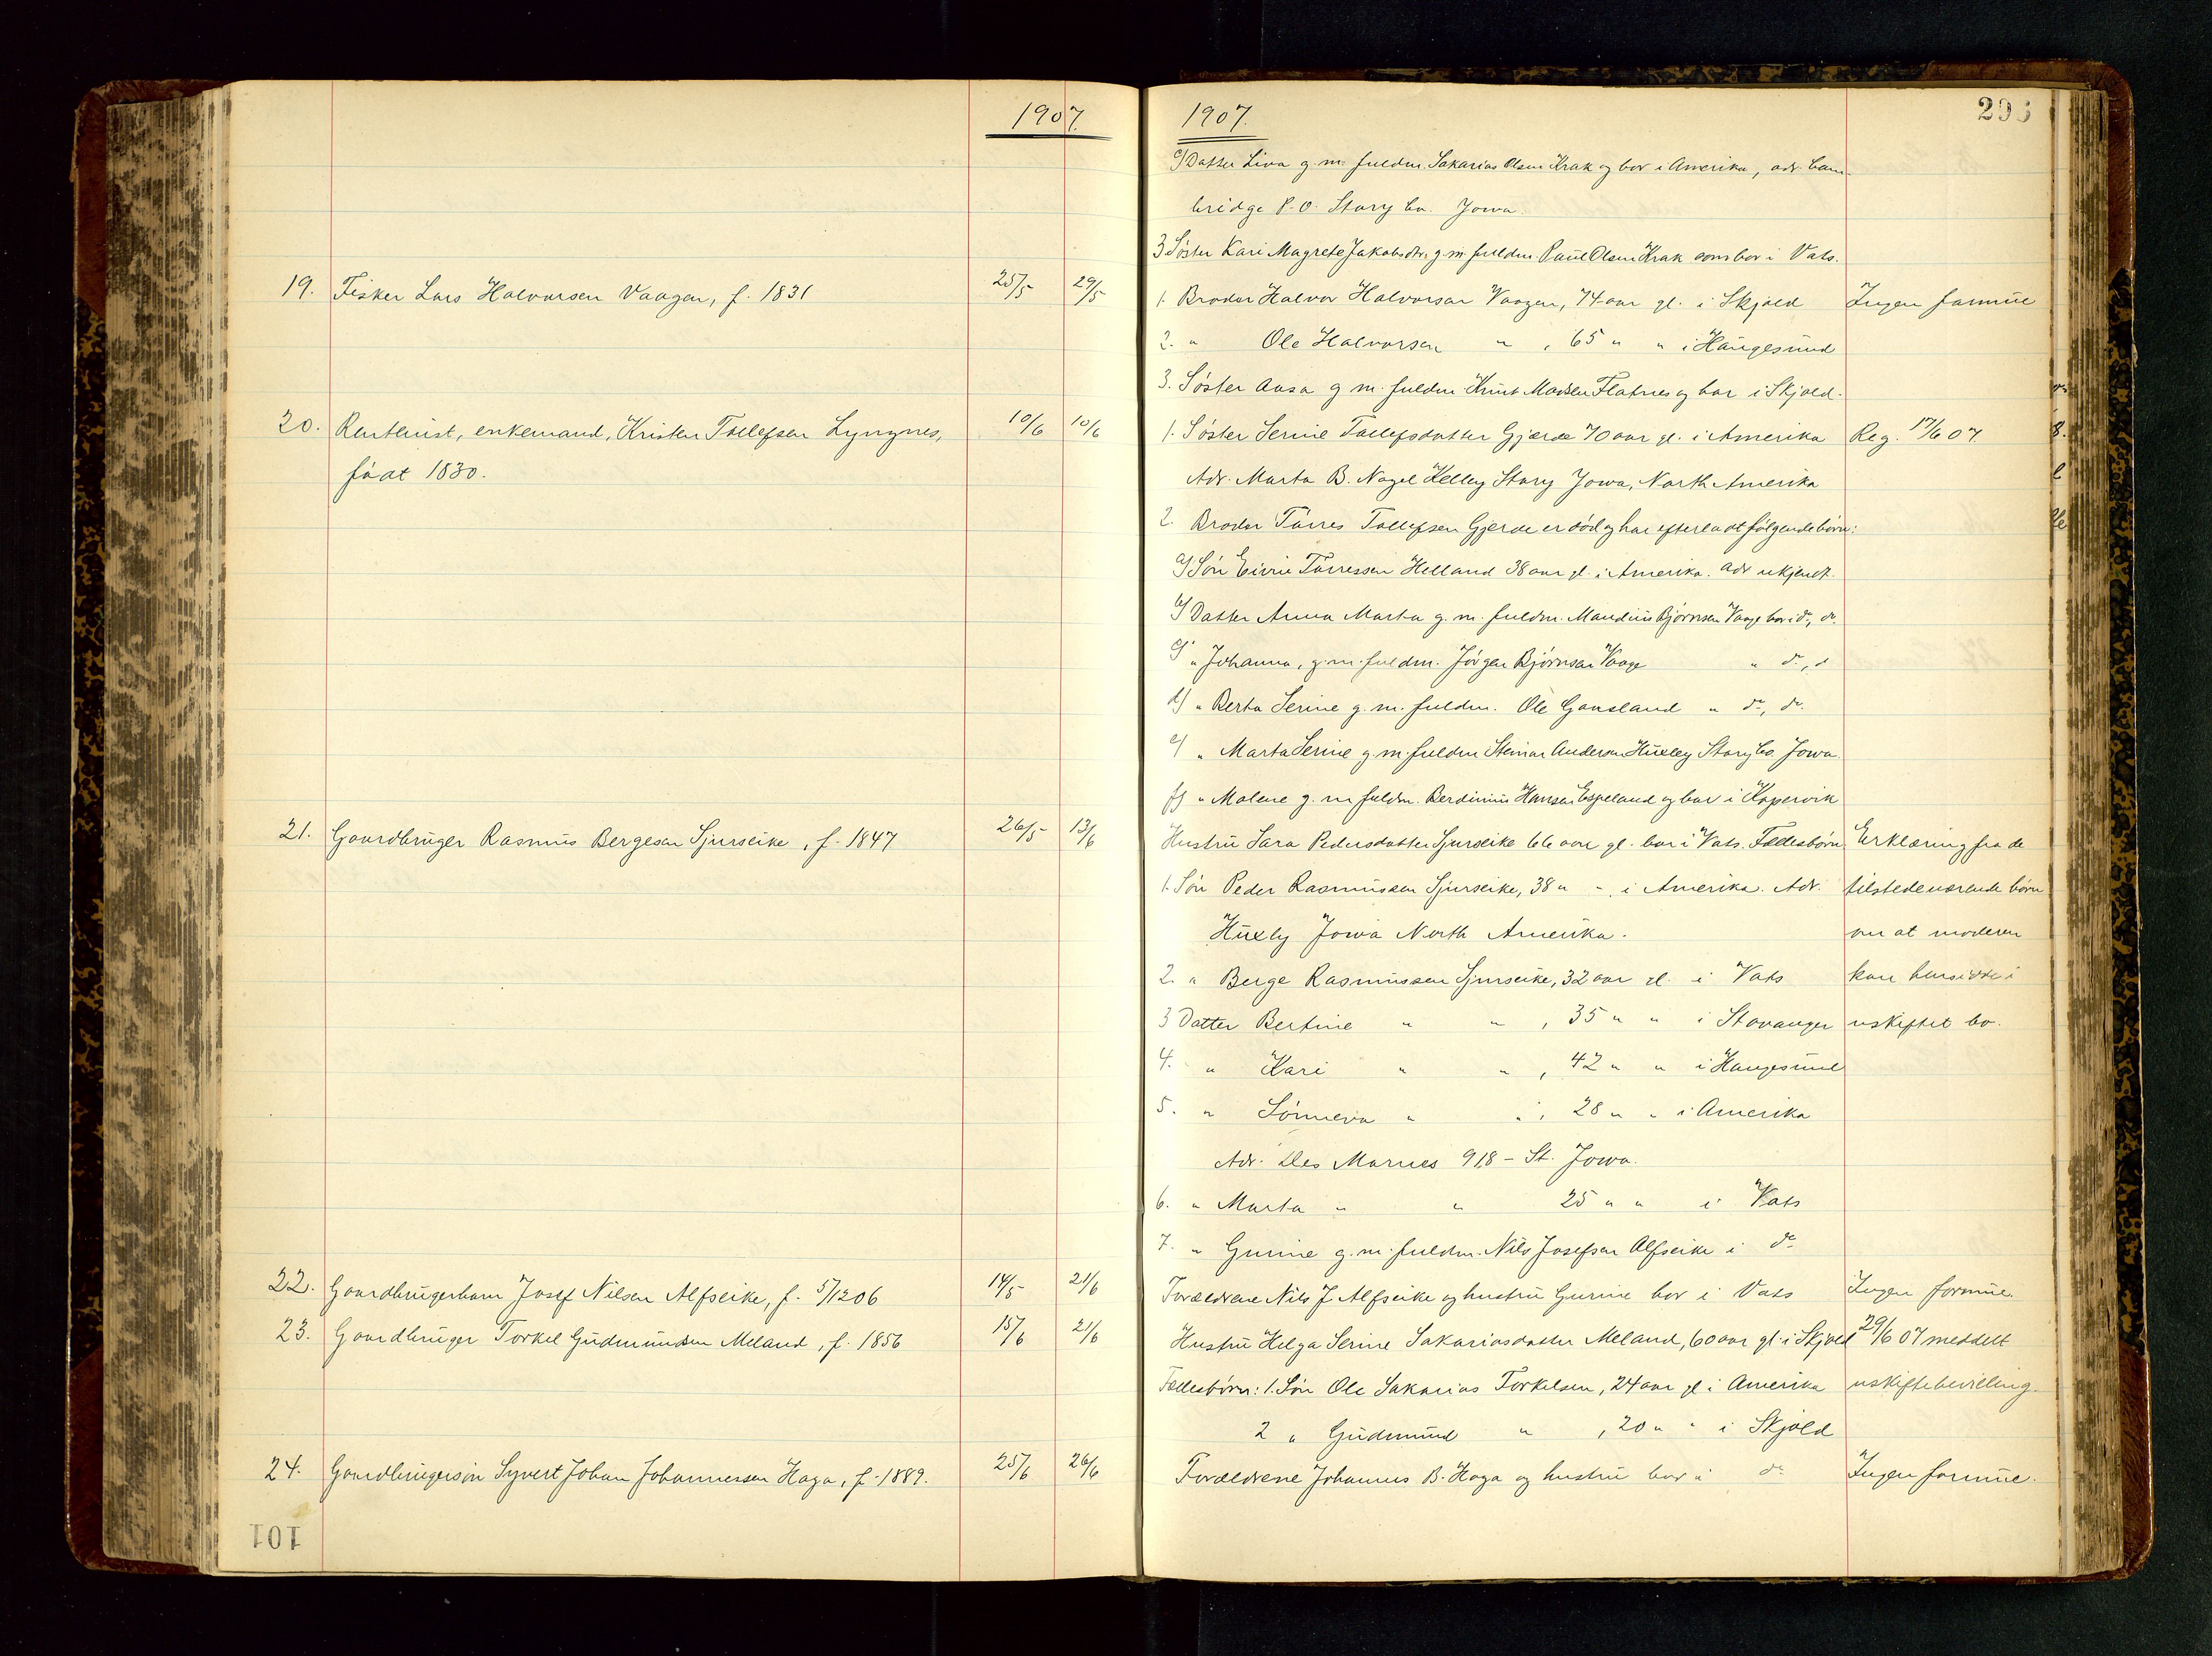 1907.
19. Fisker Lars Halvorsen Vaagen, f. 1831 25/5 29/5
20. Rentenist, enkemand, Kristen Tollefsen Lyngnes, 10/6 10/6
født 1830.
21. Gaardbruger Rasmus Bergesen Sjurseike, f. 1847 26/5 13/6
22. Gaardbrugerbarn Josef Nilsen Alfseike, f. 5/12 06 14/5 21/6
23. Gaardbruger Torkel Gudmundsen Meland, f. 1856 15/6 21/6
24. Gaardbrugersøn Syvert Johan Johannessen Haga, f. 1889. 25/6 26/6
101
1907. 293
c) Datter Liva g. m. fuldm. Sakarias Olsen Krak og bor i Amerika, adr. Cam-
bridge P.O. Story Co. Jowa.
3 Søster Kari Magrete Jakobsdtr. g. m. fuldm. Paul Olsen Krak som bor i Vats.
1. Broder Halvor Halvorsen Vaagen, 74 aar gl. i Skjold Ingen formue
2. " Ole Halvorsen " , 65 " " i Haugesund
3. Søster Aasa g. m. fuldm. Knut Madsen Flatnes og bor i Skjold.
1. Søster Serine Tollefsdatter Gjærde 70 aar gl. i Amerika Reg. 17/6 07.
Adr. Marta B. Nagel Kelley Story Jowa, North Amerika
2. Broder Tørres Tollefsen Gjerde er død og har efterladt følgende børn:
a) Søn Eivin Tørressen Helland 38 aar gl. i Amerika. adr. ukjendt.
b) Datter Anna Marta g. m. fuldm. Maudius Bjørnsen Vaage bor i do, do.
c) " Johanna, g. m. fuldm. Jörgen Bjørnsen Vaage " do, d
d) " Berta Serine g. m. fuldm. Ole Gausland " do, do.
e) " Marta Serine g. m. fuldm. Steinar Anderson Huxley Story Co. Jowa.
f) " Malene g. m. fuldm. Berdinius Hansen Espeland og bor i Kopervik
Hustru Sara Pedersdatter Sjurseike 66 aar gl. bor i Vats. Fællesbørn Erklæring fra de
1. Søn Peder Rasmussen Sjurseike, 38 " " i Amerika. Adr. tilstedeværende børn
Huxly Jowa North Amerika. om at moderen
2. " Berge Rasmussen Sjurseike, 32 aar gl. i Vats kan hensidde i
3 Datter Bertine " " , 35 " " i Stavanger uskiftet bo.
4. " Kari " " , 42 " " i Haugesund
5. " Sønneva " " , 28 " " i Amerika
Adr. Des Marnes 918 - St. Jowa.
6. " Marta " " 25 " " i Vats
7. " Gurine g. m. fuldm. Nils Josefsen Alfseike i do
Forældrene Nils J. Alfseike og hustru Gurine bor i Vats Ingen formue.
Hustru Helga Serine Sakariasdatter Meland, 60 aar gl. i Skjold 29/6 07 meddelt
Fællesbørn: 1. Søn Ole Sakarias Torkelsen, 24 aar gl. i Amerika uskiftebevilling.
2 " Gudmund " , 20 " " i Skjold
Forældrene Johannes B. Haga og hustru bor i do Ingen formue.